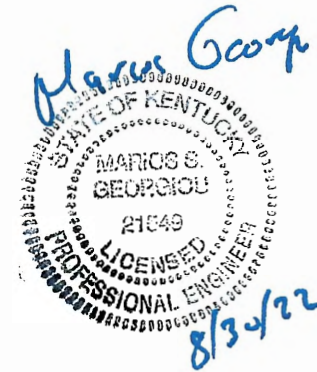 Marios Georg
STATE OF KENTUCKY
MARIOS S.
GEORGIOU
LICENSED
PROFESSIONAL ENGINEER
8/30/22